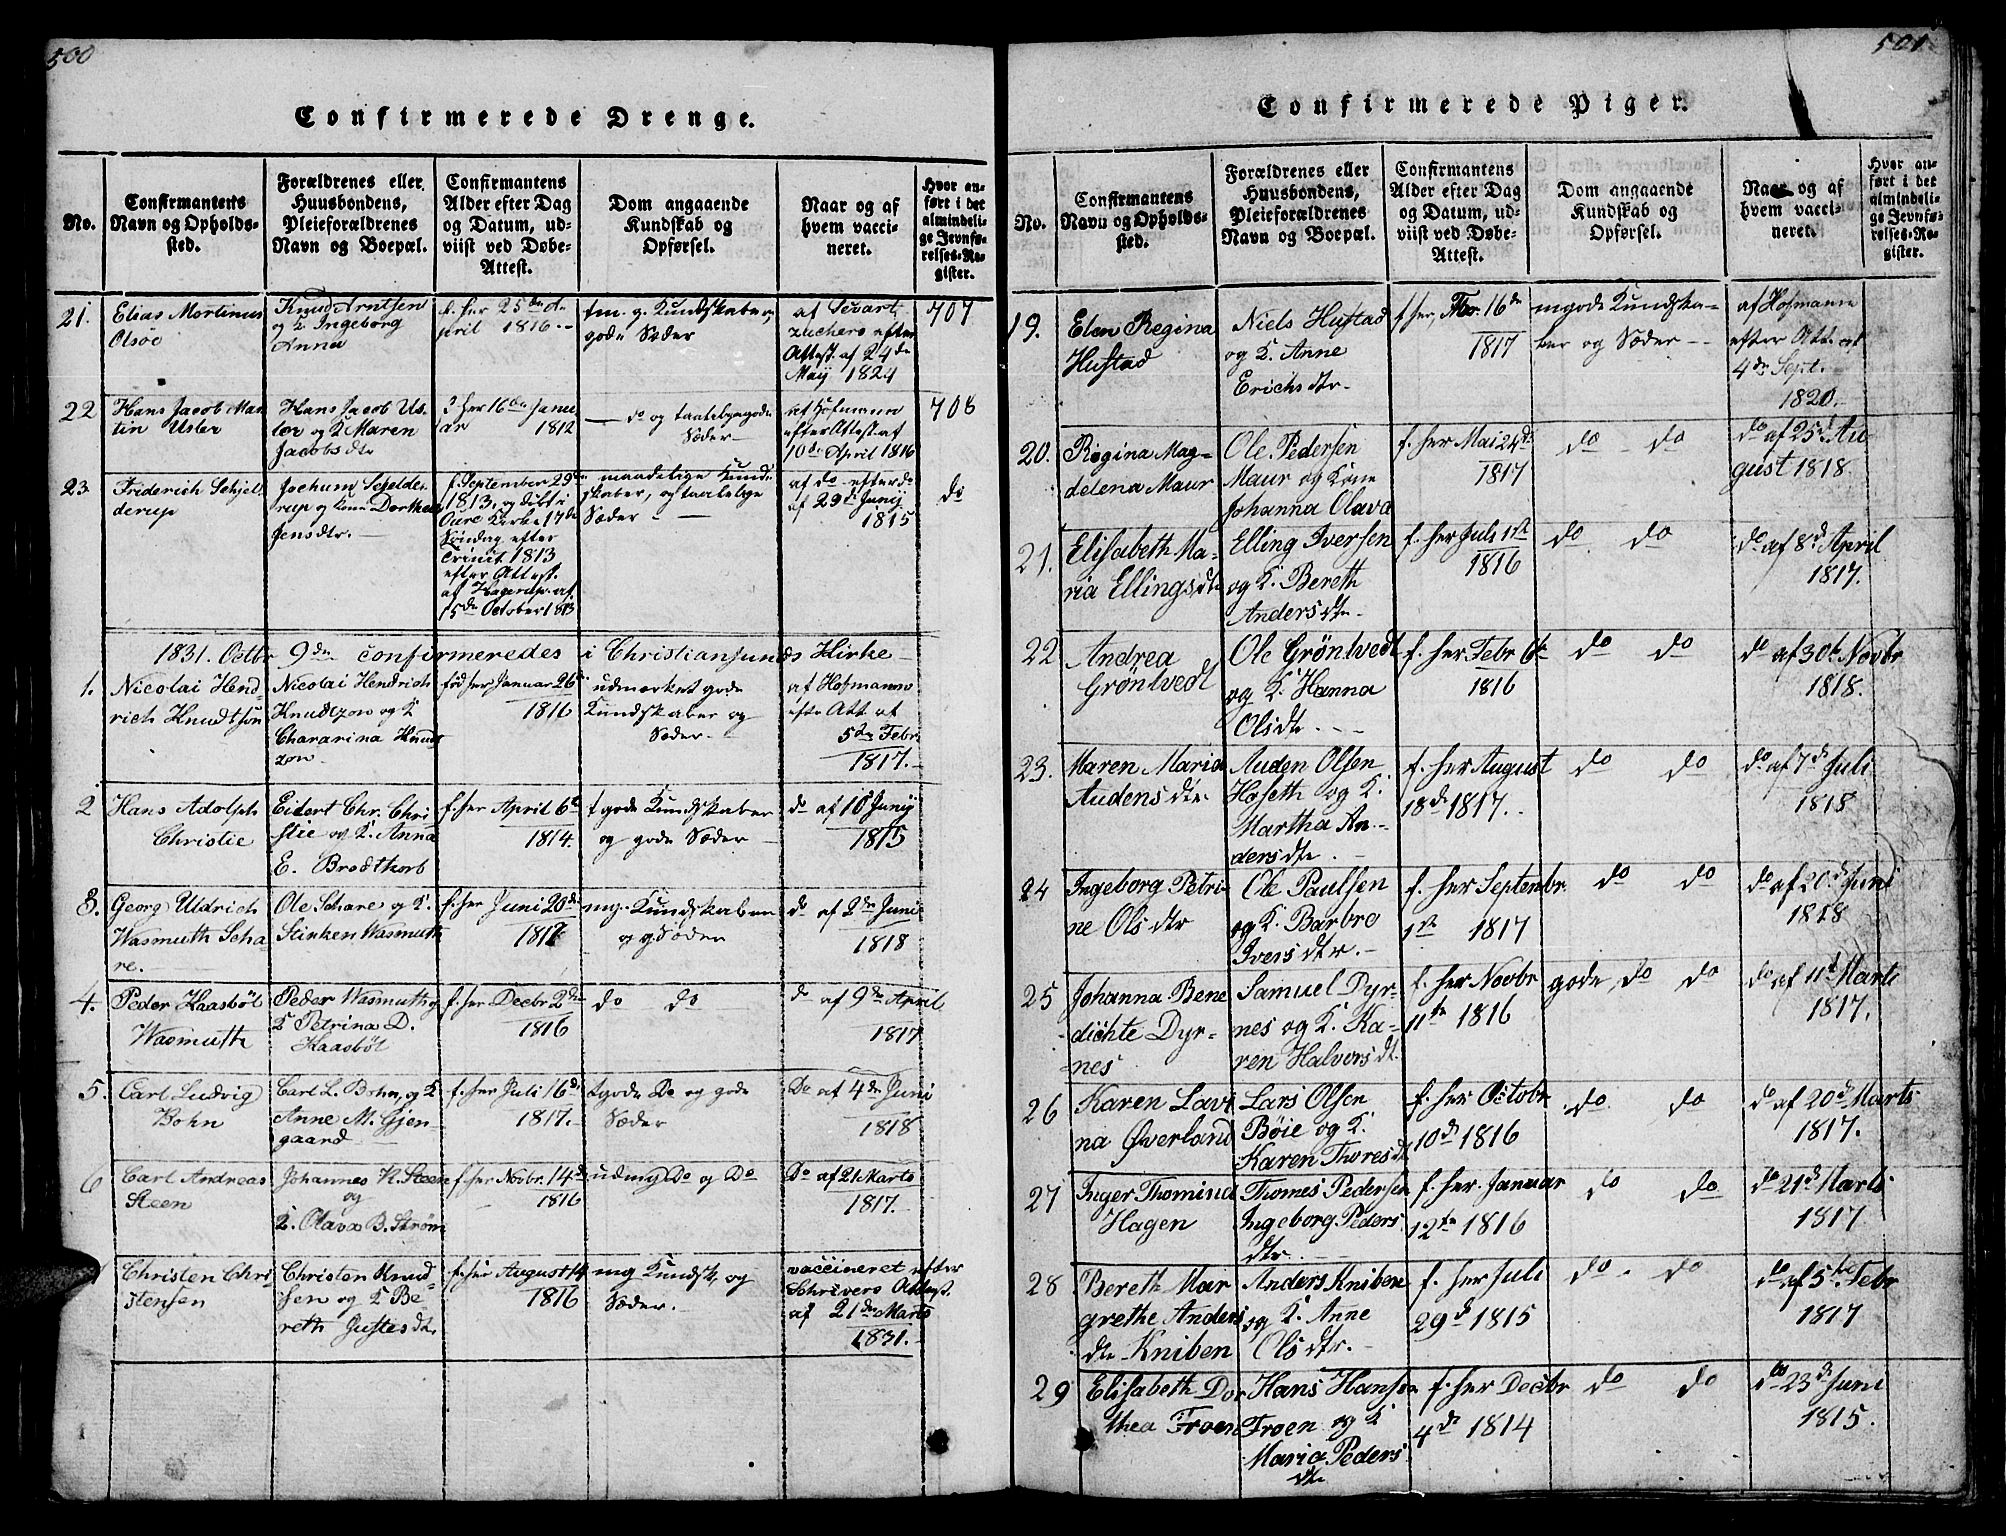 500
Confirmerede Drenge.
No.
Confirmantens
Navn og Opholds-
sted.
Forældrenes eller
Huusbondens,
Pleieforældrenes
Navn og Boepæl.
Confirmantens
Alder efter Dag
og Datum, ud-
viist ved Døbe-
Attest.
Dom angaaende
Kundskab og
Opførsel.
Naar og af
hvem vacci-
neret.
Hvor an-
ført i det
almindeli-
ge Jevnfø-
relses-Re-
gister.
21.
Elias Martinus
Olsøe
Knud Arntsen
og K Ingeborg
Anna
f. her 25de A-
pril 1816.
tm. g. Kundskaber,
gode Sæder
af Sevart
zuchero efter
Attest af 24de
Maij 1824
707
22
Hans Jacob Mar
tin Usler
Hans Jacob Us-
ler og K Maren
Jacobsdtr
f her 16de Janu
ar 1812
do og taalelig gode
Sæder
af Hofmann
efter Attest af
10de April 1816
708
23
Friderich Schjel-
derup
Jochum Schjelde-
rup og Kone Dorthea
Jensdtr.
f. September 29de
1813, og døbt i
Oure Kirke 17de
Søndag efter
Trinit. 1813
efter Attest.
af Hagerup af
15de October 1813
maadelige Kund-
skaber, og taalelige
Sæder
af do efter do
af 29de Junij
1815
do
1831. Octbr 9de confirmeredes i Christiansunds Kirke
1.
Nicolai Hend-
rich Knudtson
Nicolai Hendrich
Knudtzon og K
Chararina Knud
zon
fød her Januar 26
1816
udmærket gode
Kundskaber og
Sæder.
af Hofmann
efter Att. af
5de Febr.
1817.
2
Hans Adolph
Christie
Eidert Chr. Chri
stie og K. Anna
E. Brodtkorb
f. her April 6te
1814.
t gode Kundskaber
og gode Sæder
do af 10 Junij
1815
3.
Georg Uldrich
Wasmuth Scha-
re.
Ole Schare og K.
Stinken Wasmuth
f. her Juni 20de
1817
mg. Kundskaber
og g Sæder
do af 2de Juni
1818
4.
Peder Kaasbøl
Wasmuth
Peder Wasmuth og
K Petrina D.
Kaasbøl
f. her Decbr 2de
1816
do do
do af 9de April
1817
5.
Carl Ludvig
Bohn
Carl L. Bohn, og K
Anne M. Gjen-
gaard
f. her Juli 16de
1817.
t gode Do og gode
Sæder
Do af 4de Juni
1818
6
Carl Andreas
Steen
Johannes K. Steen
og
K. Olava B. Strøm
f. her Novbr. 14de
1816
udm g Do og Do
Do af 21 Marts
1817.
Christen Chri-
stensen
Christen Knud-
sen og K Be-
reth Justesdtr.
f. her August 14
1816
mg Kundsk, og
Sæder.
vaccineret efter
Schrivers Attest
af 21de Marts
1831.
501
Confirmerede Piger.
No.
Confirmantens
Navn og Opholds-
sted.
Forældrenes eller
Huusbondens,
Pleieforældrenes
Navn og Boepæl.
Confirmantens
Alder efter Dag
og Datum, ud-
viist ved Døbe-
Attest.
Dom angaaende
Kundskab og
Opførsel.
Naar og af
hvem vacci-
neret.
Hvor an-
ført i det
almindeli-
ge Jevnfø-
relses-Re-
gister.
19.
Elen Regina
Hustad
Niels Hustad
og K. Anne
Erichsdtr.
f her, 16de
1817
m gode Kundska-
ber og Sæder
af Hofmann
efter Att. af
4de Sept.
1820.
20.
Regina Mag-
delena Maur
Ole Pedersen
Maur og Kone
Johanna Olava
f. her Mai 24de
1817
do do
do af 25d Au-
gust 1818.
21.
Elisabeth Ma-
ria Ellingsdtr
Elling Iversen
og K. Bereth
Andersdtr.
f. her Juli 1st
1816
do do
do af 8d April
1817.
22
Andrea
Grøntvedt
Ole Grøntvedt
og K. Hanna
Olsdtr.
f. her Febr 6te
1816
do do
do af 30te Novbr
1818.
23.
Maren Maria
Audensdtr
Auden Olsen
Hoseth og K.
Martha An-
dersdtr.
f. her August
18d 1817.
do do
do af 7d Juli
1818
24
Ingeborg Petri-
ne Olsdtr
Ole Paulsen
og K. Barbro
Iversdtr.
f. her Septenbr.
1st 1817
do do
do af 20d Juni
1818
25
Johanna Bene
dichte Dyr-
nes
Samuel Dyr-
nes og K. Ka-
ren Halvorsdtr.
f. her Novbr
11te 1816
gode do do
do af 11d Marts
1817.
26
Karen Lavi
na Øverland
Lars Olsen
Bøie og K.
Karen Thoresdtr
f. her Octobr
10d 1816
do do
do af 20d Marts
1817.
27
Inger Thomina
Hagen
Thomes Pedersen
Ingeborg Peders
dtr.
f. her. Januar
12te 1816
do do
do 21d Marts
1817
28
Bereth Mar
grethe Anders
dtr Kniben
Anders Kniben
og K. Anne
Olsdtr.
f. her Juli
29d 1815
do do
do af 5te Febr
1817
29
Elisabeth Dor
thea Froen
Hans Hansen
Froen og K
Maria Peders
dtr
f. her Decbr
4de 1814
do do
do 23d Juni
1815.